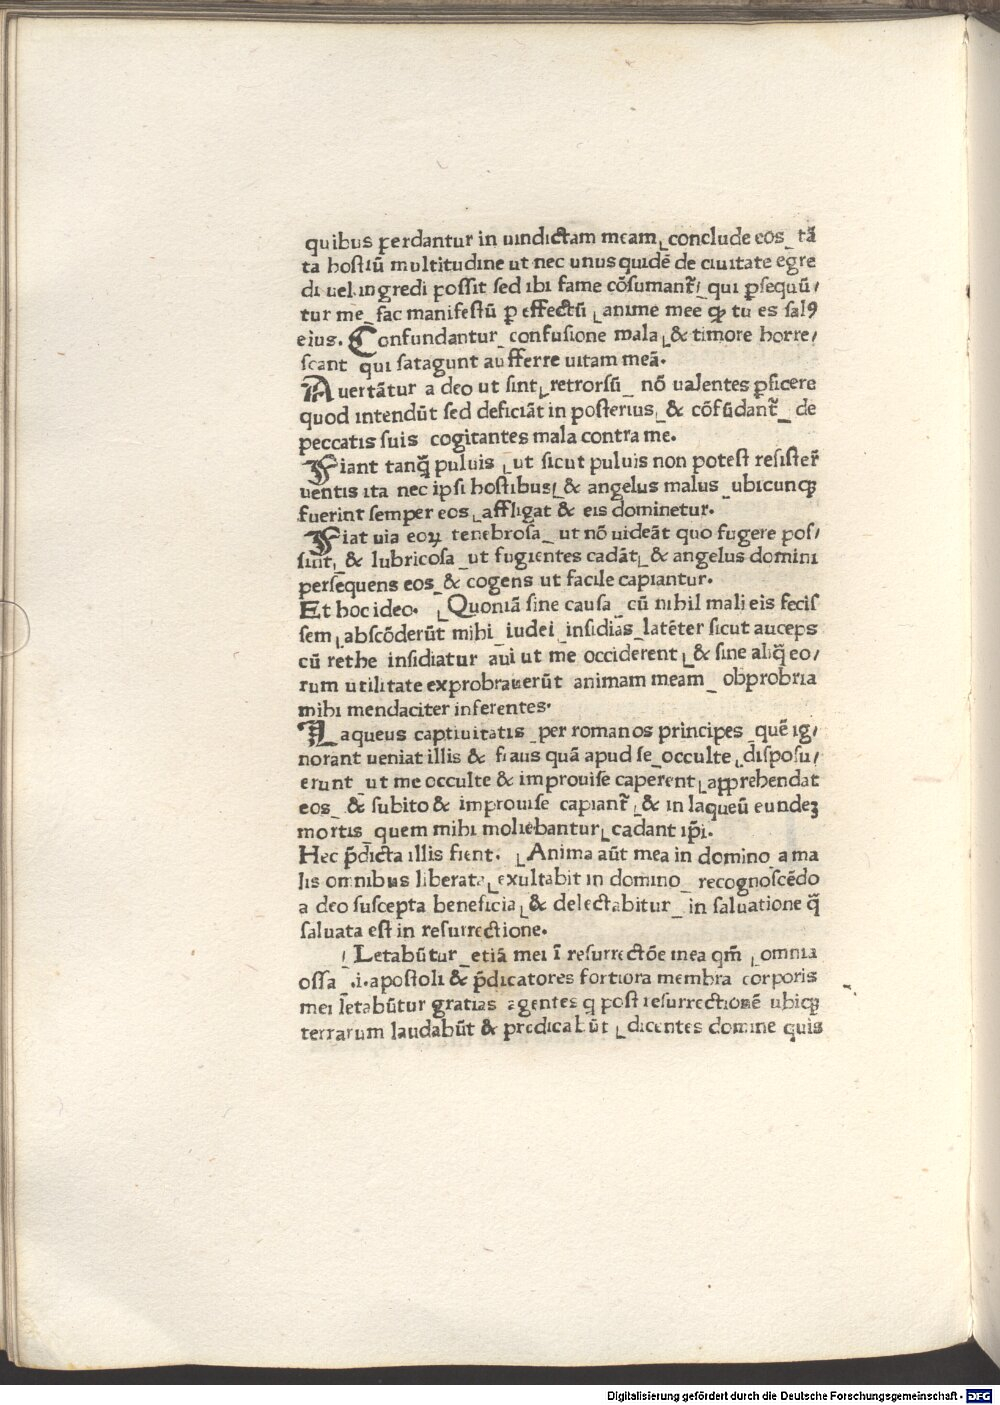 quibus perdantur in uindictam meam⸤ conclude eos_ tã
ta hostiũ multitudine ut nec unus quidẽ de ciuitate egre
di uel ingredi possit sed ibi fame cõsumant᷑/ qui ꝑsequũ/
tur me_ fac manifestũ ꝑ effectũ ⸤anime mee ꝙ tu es salꝰ
eius. Confundantur_ confusione mala⸤ & timore horre/
scant qui satagunt aufferre uitam meã.
Auertãtur a deo ut sint⸤ retrorsũ_ nõ ualentes ꝑficere
quod intendũt sed deficiãt in posterius⸤ & cõfũdant᷑_ de
peccatis suis cogitantes mala contra me.
Fiant tanq̃ puluis ⸤ut sicut puluis non potest resister᷑
uentis ita nec ipsi hostibus/ & angelus malus_ ubicunqꝫ
fuerint semper eos ⸤affligat & eis dominetur.
Fiat uia eoꝝ tenebrosa_ ut nõ uideãt quo fugere pos/
sint⸤ & lubricosa_ ut fugientes cadãt⸤ & angelus domini
persequens eos_ & cogens ut facile capiantur.
Et hoc ideo. ⸤Quoniã sine causa_ cũ nihil mali eis fecis
sem⸤ abscõderũt mihi_ iudei_ insidias_ latẽter sicut auceps
cũ rethe insidiatur aui ut me occiderent⸤ & sine aliq̃ eo/
rum utilitate exprobrauerũt animam meam_ obprobria
mihi mendaciter inferentes.
Laqueus captiuitatis_ per romanos principes_ quẽ ig/
norant ueniat illis & fraus quã apud se_ occulte ⸤disposu/
erunt_ ut me occulte & improuise caperent⸤ apprehendat
eos_ & subito & improuise capiant᷑ ⸤& in laqueũ eundeꝫ
mortis_ quem mihi moliebantur⸤ cadant ip̃i.
Hec p̃dicta illis fient. ⸤Anima aũt mea in domino_ a ma
lis omnibus liberata⸤ exultabit in domino_ recognoscẽdo
a deo suscepta beneficia⸤ & delectabitur_ in saluatione q̃
saluata est in resurrectione.
⸤Letabũtur_ etiã mei ĩ resurrectõe mea qm̃ ⸤omnia
ossa_ .i. apostoli & p̃dicatores fortiora membra corporis
mei letabũtur gratias agentes q post resurrectionẽ ubiqꝫ
terrarum laudabũt & predicabũt ⸤dicentes domine quis
Digitalisierung gefördert durch die Deutsche Forschungsgemeinschaft - DFG